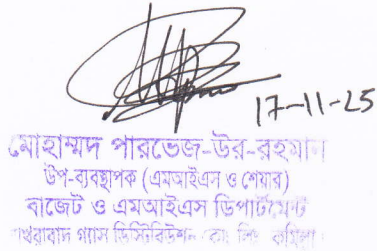 17-11-25
মোহাম্মদ পারভেজ-উর-রহমান
উপ-ব্যবস্থাপক (এমআইএস ও শেয়ার)
বাজেট ও এমআইএস ডিপার্টমেন্ট
বাখরাবাদ গ্যাস ডিস্ট্রিবিউশন কোং লিঃ কুমিল্লা